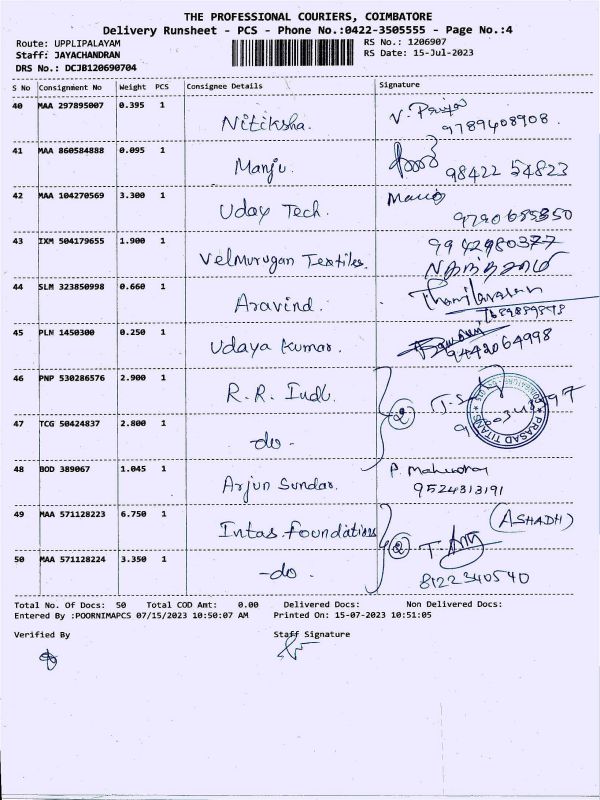 THE PROFESSIONAL COURIERS, COIMBATORE
Delivery Runsheet - PCS - Phone No.:0422-3505555 - Page No.:4
Route: UPPLIPALAYAM
RS No.: 1206907
Staff: JAYACHANDRAN
RS Date: 15-Jul-2023
DRS No.: DCJB120690704
S No Consignment No Weight PCS Consignee Details Signature
40 MAA 297895007 0.395 1 Nitiksha. V. Priya
9789408908.
41 MAA 860584888 0.095 1 Manju.
98422 54823
42 MAA 104270569 3.300 1 Uday Tech.
43 IXM 504179655 1.900 1 Velmurugan Textiles.
44 SLM 323850998 0.660 1 Aravind. Thamilarasan
45 PLN 1450300 0.250 1 Udaya Kumar.
9442064998
46 PNP 530286576 2.900 1 R.R. Indl. 2
PRASAD TITANS
47 TCG 50424837 2.800 1 -do-
48 BOD 389067 1.045 1 Arjun Sundar. P. Mahendra
9524313191
49 MAA 571128223 6.750 1 Intas foundations (ASHADH)
2
50 MAA 571128224 3.350 1 -do.
8122340540
Total No. Of Docs: 50 Total COD Amt: 0.00 Delivered Docs: Non Delivered Docs:
Entered By :POORNIMAPCS 07/15/2023 10:50:07 AM Printed On: 15-07-2023 10:51:05
Verified By Staff Signature